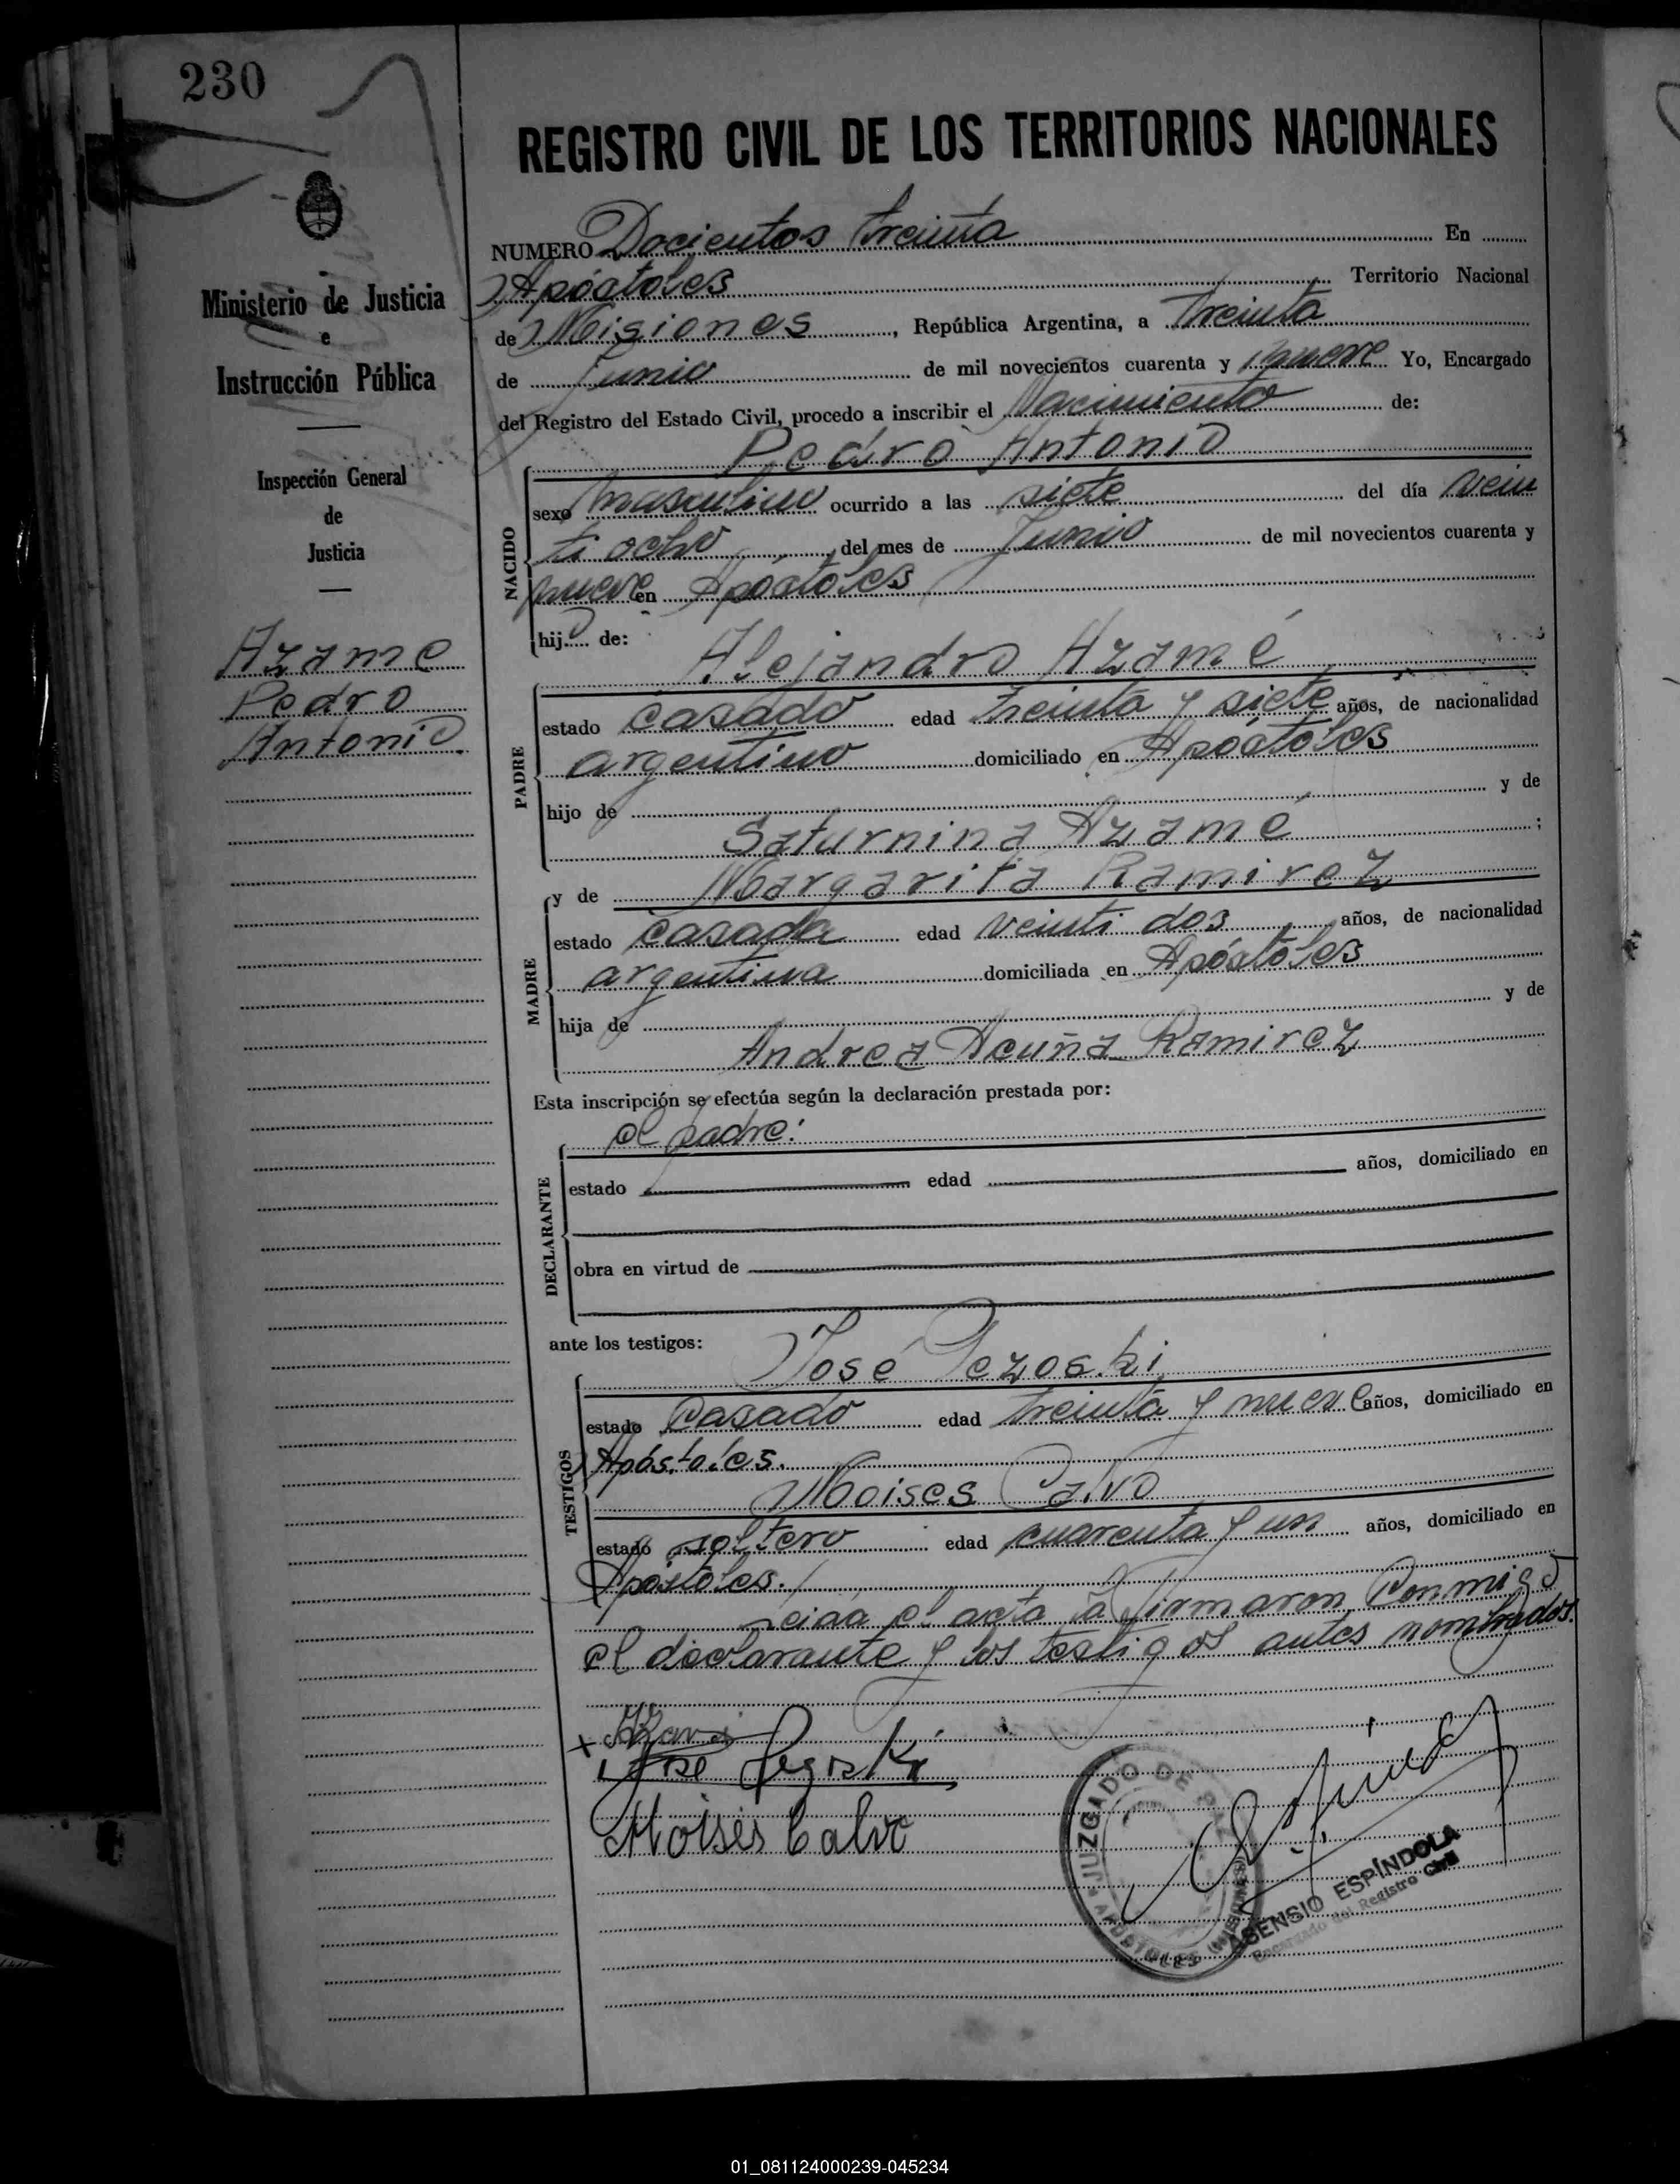 230
REGISTRO CIVIL DE LOS TERRITORIOS NACIONALES
Ministerio de Justicia
e
Instrucción Pública
Inspección General
de
Justicia
Azame
Pedro
Antonio.
NUMERO Docientos treinta En
Apóstoles Territorio Nacional
de Misiones, República Argentina, a Treinta
de Junio de mil novecientos cuarenta y nueve Yo, Encargado
del Registro del Estado Civil, procedo a inscribir el Nacimiento de:
Pedro Antonio
NACIDO
sexo masculino ocurrido a las siete del día vein
ti ocho del mes de Junio de mil novecientos cuarenta y
nueve en Apóstoles
hijo de:
Alejandro Azamé
PADRE
estado casado edad treinta y siete años, de nacionalidad
argentino domiciliado en Apóstoles
hijo de y de
Saturnina Azamé;
y de Margarita Ramirez
MADRE
estado casada edad veinti dos años, de nacionalidad
argentina domiciliada en Apóstoles
hija de y de
Andrea Acuña Ramirez
Esta inscripción se efectúa según la declaración prestada por:
el padre:
DECLARANTE
estado edad años, domiciliado en
obra en virtud de
ante los testigos:
José
TESTIGOS
estado Casado edad treinta y nueve años, domiciliado en
Apóstoles.
Moises Calvo
estado soltero edad cuarenta y un años, domiciliado en
Apóstoles.
el acta la firmaron Conmigo
el declarante y los testigos antes nombrados.
José
Moisés Calvo
JUZGADO DE PAZ
APOSTOLES (MISIONES)
ASENSIO ESPÍNDOLA
Encargado del Registro Civil
01_081124000239-045234